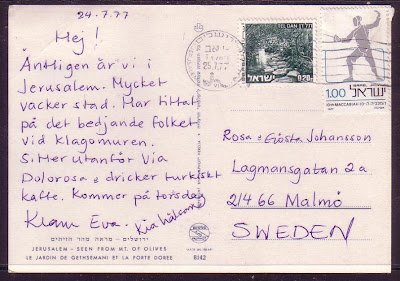 24.7.77
Hej!
Äntligen är vi i
Jerusalem. Mycket
vacker stad. Har tittat
på det bedjande folket
vid klagomuren.
Sitter utanför Via
Dolorosa & dricker turkiskt
kaffe. Kommer på torsdag
Kram Eva.
Kia hälsar
ירושלים - מראה מהר הזיתים
JERUSALEM – SEEN FROM MT. OF OLIVES
LE JARDIN DE GETHSEMANI ET LA PORTE DOREE
8142
25.7.77
TEL DAN תל דן
ישראל ISRAEL
0.20
1.00
ישראל ISRAEL
Rosa & Gösta Johansson
Lagmansgatan 2a
214 66 Malmö
SWEDEN